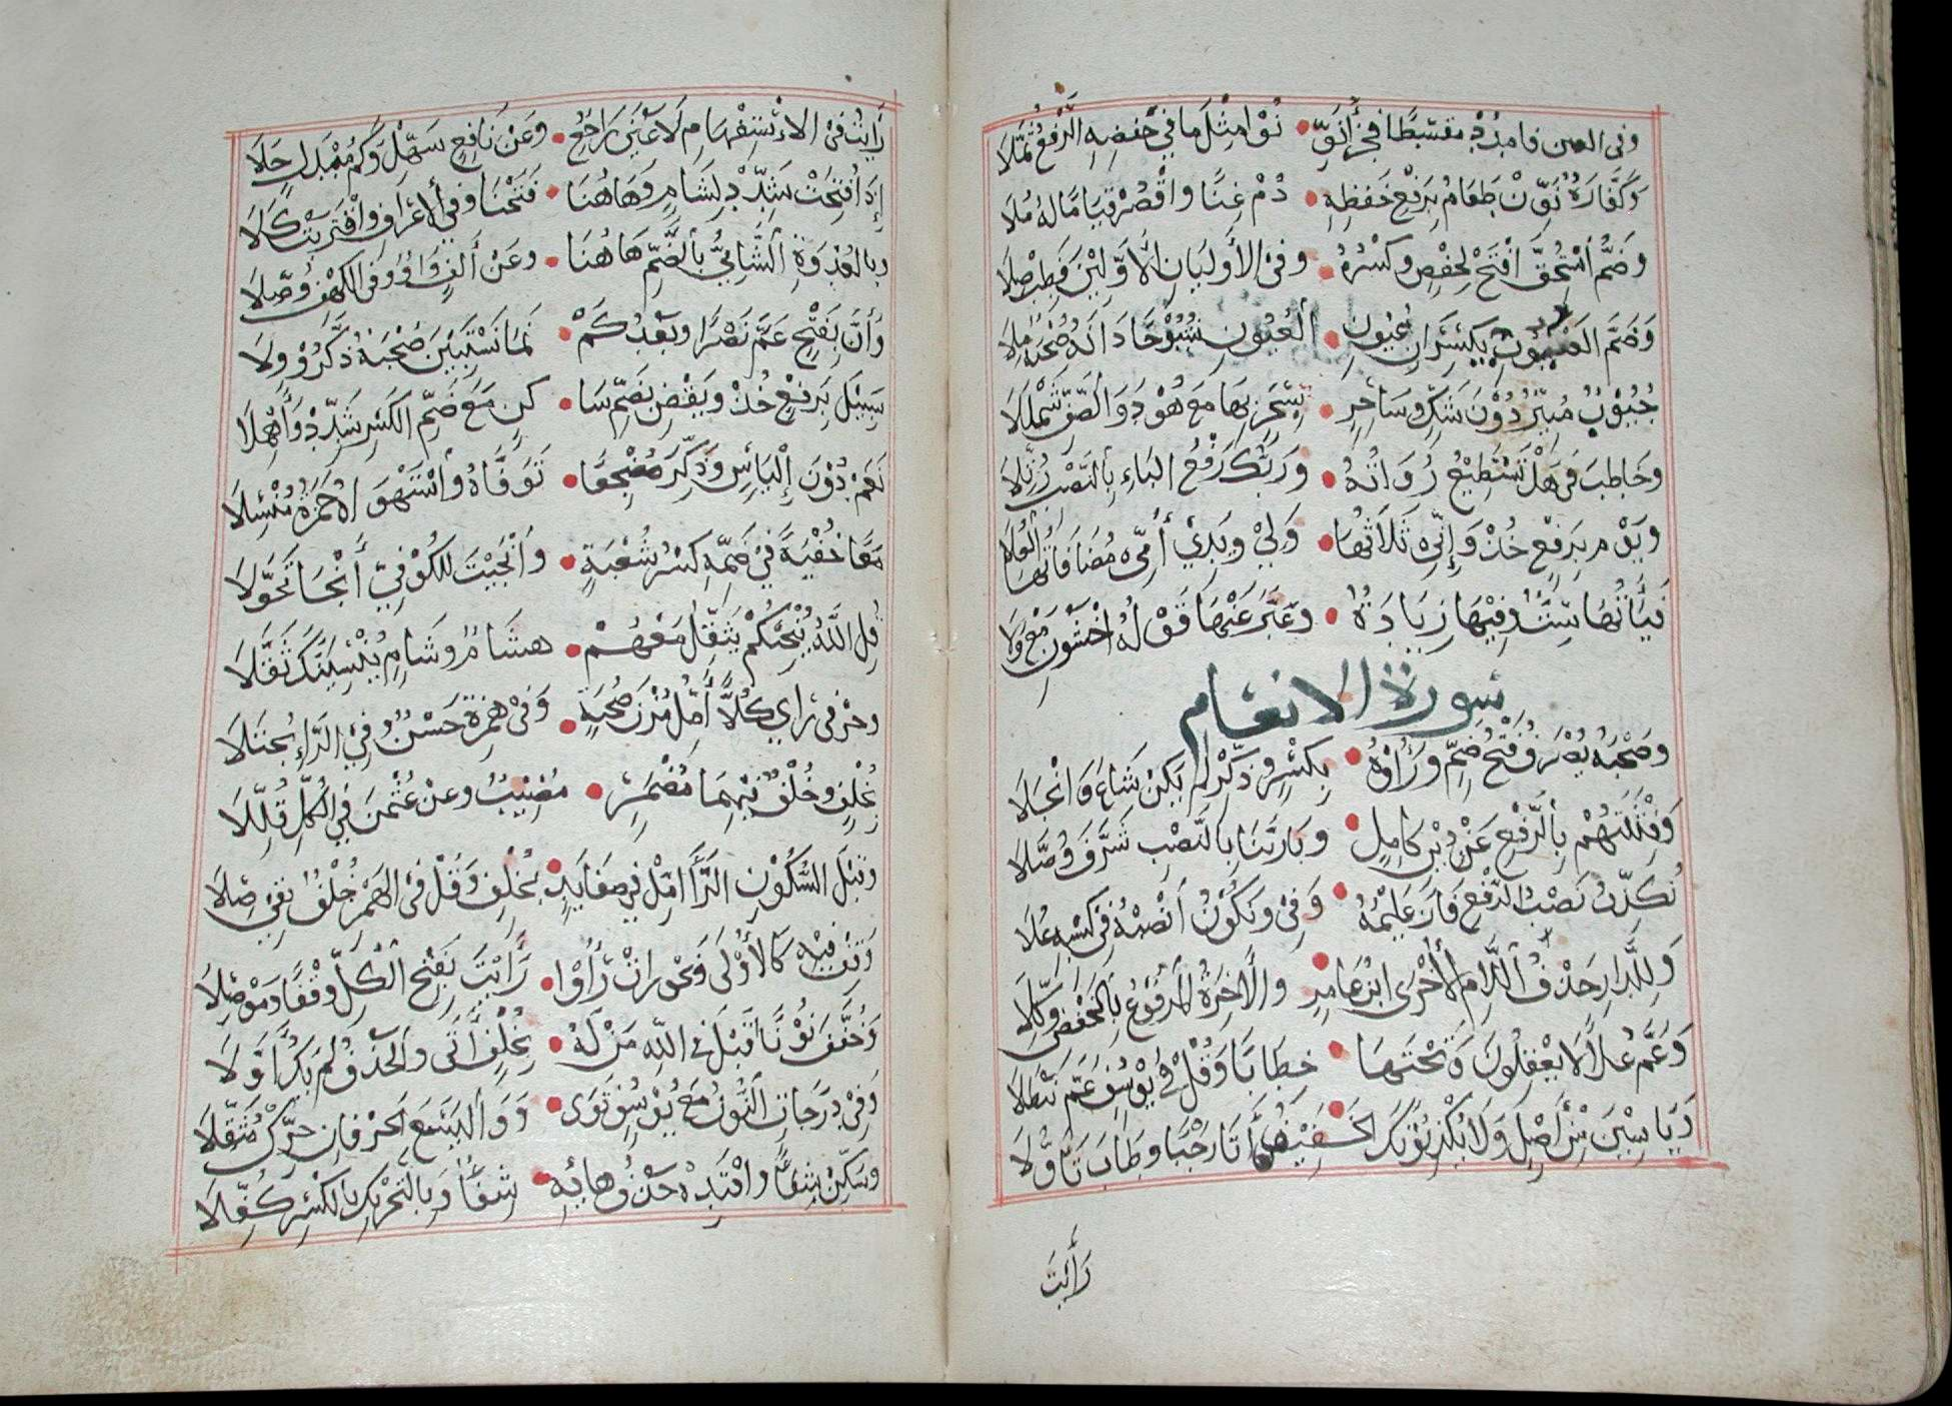 وفى العين فامدد مقسطا فجزاء نو • نوا مثل ما في خفضه الرفع ثملا
وَكَفَّارَةٌ نَوِّنْ طَعَامُ بِرَفْعِ خَفْضِهِ • دُمْ غِنًا وَاقْصُرْ قِيَامًا لَهُ مُلَا
وَضَمُّ اسْتُحِقَّ افْتَحْ لِحَفْصٍ وَكَسْرَهُ • وَفِي الأَوْلَيَانِ الأَوَّلِينَ فَطِبْ صِلَا
وَضَمَّ الْغُيُوبِ يَكْسِرَانِ عُيُونِ • الْعُيُونِ شُيُوخًا دَانَهُ صُحْبَةٌ مِلَا
جُيُوبٌ مُنِيرٌ دُونَ شَكٍّ وَسَاحِرٌ • بِسِحْرٍ بِهَا مَعْ هُودَ وَالصَّفِّ شَمْلَلَا
وَخَاطَبَ فِي هَلْ تَسْتَطِيعُ رُوَاتُهُ • وَرَبُّكَ رَفْعُ الْبَاءِ بِالنَّصْبِ رُتِّلَا
وَيَوْمَ بِرَفْعٍ خُذْ وَإِنِّي ثَلَاثُهَا • وَلِيْ وَيَدِيْ أُمِّي مُضَافَاتُهَا الْعُلَا
سورة الانعام
وَصُحْبَةُ يُصْرَفْ فَتْحُ ضَمٍّ وَرَاؤُهُ • بِكَسْرٍ وَذَكِّرْ لَمْ يَكُنْ شَاعَ وَانْجَلَا
وَفِتْنَتُهُمْ بِالرَّفْعِ عَنْ دِيْنِ كَامِلٍ • وَبَا رَبِّنَا بِالنَّصْبِ شَرَّفَ وُصَّلَا
نُكَذِّبُ نَصْبُ الرَّفْعِ فَازَ عَلِيمُهُ • وَفِيْ وَنَكُوْنُ انْصِبْهُ فِي كَسْبِهِ عُلَا
وَلَلدَّارُ حَذْفُ اللَّامِ الْأُخْرَى ابْنُ عَامِرٍ • وَالْآخِرَةُ الْمَرْفُوعُ بِالْخَفْضِ وُكِّلَا
وَعَمَّ عُلًا لَا يَعْقِلُونَ وَتَحْتَهَا • خِطَابًا وَقُلْ فِيْ يُوْسُفٍ عَمَّ نَيْطَلَا
وَيَاسِيْنَ مِنْ أَصْلٍ وَلَا يُكْذِبُوْنَكَ • الْخَفِيْفُ أَتَى رَحْبًا وَطَابَ تَأَوُّلَا
رَأَيْتَ
رَأَيْتُ فِي الْاسْتِفْهَامِ لَا عَيْنَ رَاجِعٌ • وَعَنْ نَافِعٍ سَهِّلْ وَكَمْ مُبْدِلٍ جَلَا
إِذَا فُتِحَتْ شَدِّدْ لِشَامٍ وَهَاهُنَا • فَتَحْنَا وَفِي الْأَعْرَافِ وَاقْتَرَبَتْ كَلَا
وَبِالْغُدْوَةِ الشَّامِيُّ بِالضَّمِّ هَاهُنَا • وَعَنْ أَلِفٍ وَاوٌ وَفِي الْكَهْفِ وُصَّلَا
وَأَنَّ بِفَتْحٍ عَمَّ نَصْرًا وَبَعْدُ كَمْ • نَمَا تَسْتَبِيْنَ صُحْبَةٌ ذَكَّرُوْ وِلَا
سَبِيْلَ بِرَفْعٍ خُذْ وَيَقْضِ بِضَمِّ سَا • كِنٍ مَعَ ضَمِّ الْكَسْرِ شَدِّدْ وَأَهْمِلَا
نَعَمْ دُوْنَ إِلْبَاسٍ وَذَكَّرَ مُضْجِعًا • تَوَفَّاهُ وَاسْتَهْوَاهُ حَمْزَةُ مُنْسِلَا
مَعًا خُفْيَةً فِيْ ضَمِّهِ كَسْرُ شُعْبَةٍ • وَأَنْجَيْتَ لِلْكُوْفِيِّ أَنْجَا تَحَوَّلَا
قُلِ اللَّهُ يُنْجِيْكُمْ يُثَقِّلُ مَعْهُمْ • هِشَامٌ وَشَامٍ يُنْسِيَنَّكَ ثَقَّلَا
وَحَرْفَيْ رَأَى كُلًّا أَمِلْ مُزْنَ صُحْبَةٍ • وَفِيْ هَمْزِهِ حُسْنٌ وَفِي الرَّاءِ يُجْتَلَا
بِخُلْفٍ وَخُلْفٌ فِيْهِمَا مَعَ مُضْمَرٍ • مُصِيْبٌ وَعَنْ عُثْمَانَ فِي الْكُلِّ قَلِّلَا
وَقَبْلَ السُّكُوْنِ الرَّا أَمِلْ فِيْ صَفَا يَدٍ • بِخُلْفٍ وَقُلْ فِي الْهَمْزِ خُلْفٌ يَقِيْ صِلَا
وَقِفْ فِيْهِ كَالْأُوْلَى وَنَحْوُ رَأَتْ رَأَوْا • رَأَيْتَ بِفَتْحِ الْكُلِّ وَقْفًا وَمَوْصِلَا
وَخَفَّفَ نُوْنًا قَبْلَ فِي اللَّهِ مَنْ لَهُ • بِخُلْفٍ أَتَى وَالْحَذْفُ لَمْ يَكُ أَوَّلَا
وَفِيْ دَرَجَاتِ النُّوْنُ مَعْ يُوْسُفٍ ثَوَى • وَوَالْيَسَعَ الْحَرْفَانِ حَرِّكْ مُثَقِّلَا
وَسَكِّنْ شِفَاءً وَاقْتَدِهْ حَذْفُ هَائِهِ • شِفَاءً وَبِالتَّحْرِيْكِ بِالْكَسْرِ كُفِّلَا